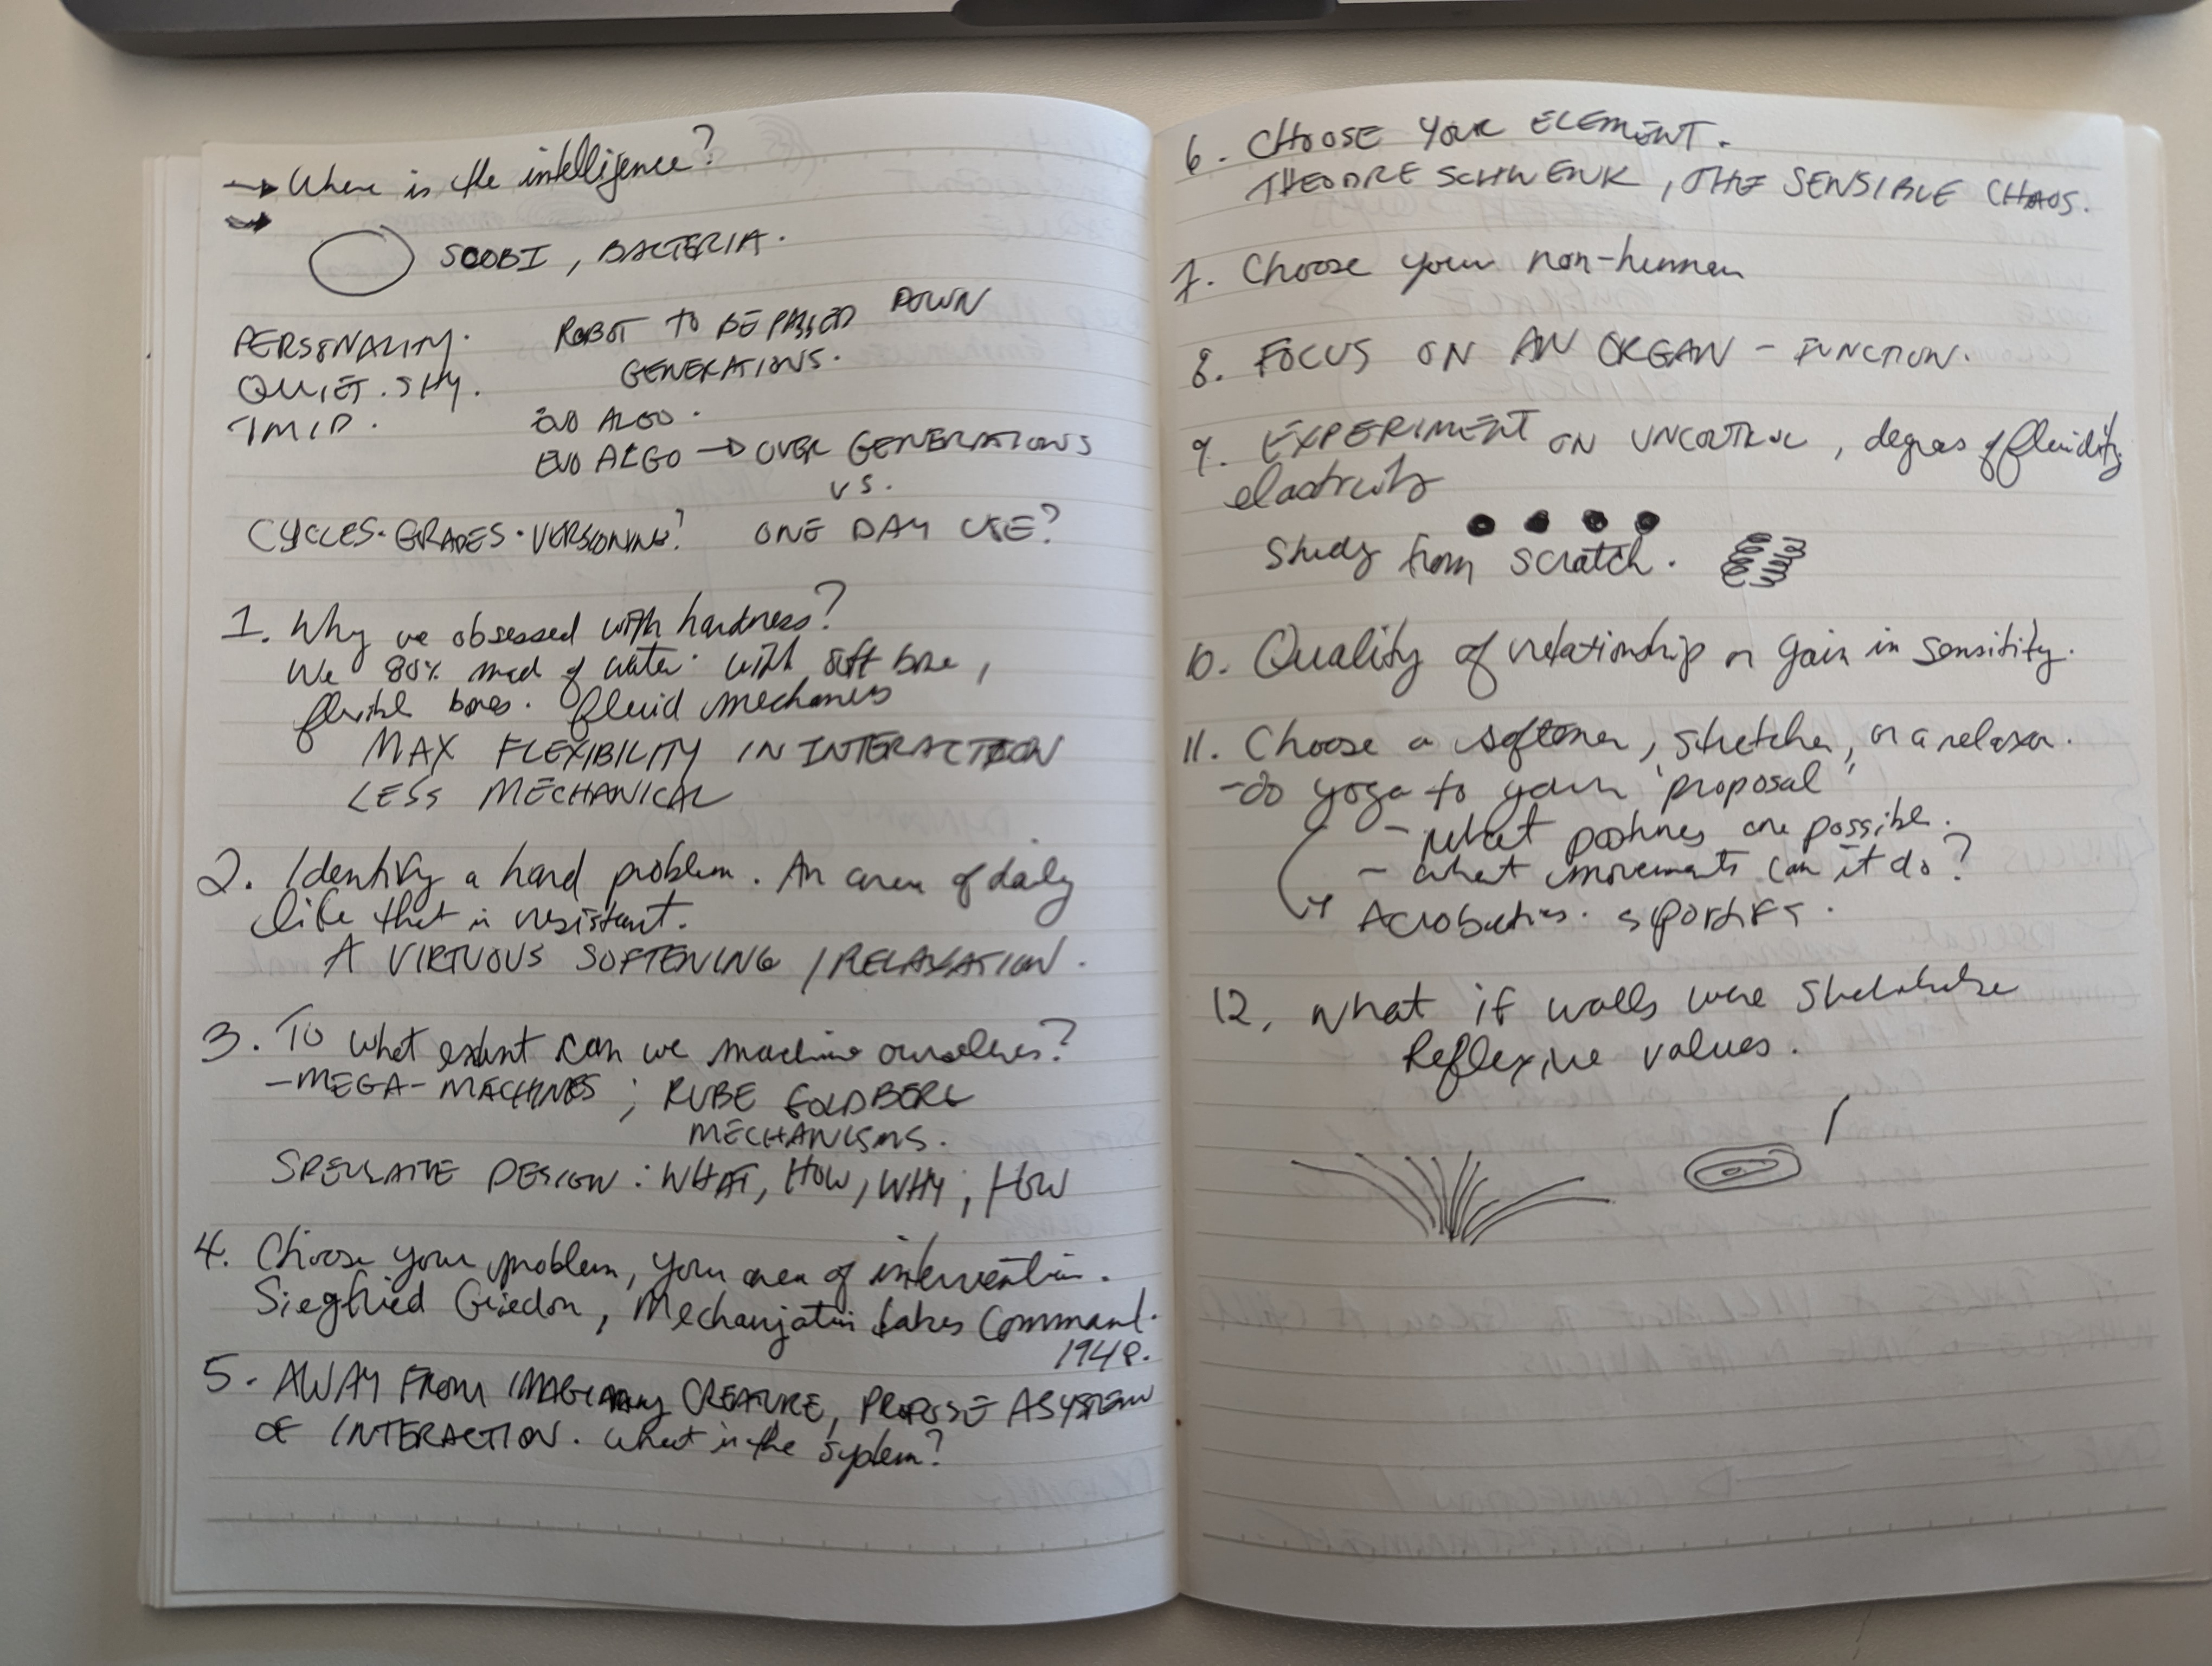 → Where is the intelligence?
→
SCOBI, BACTERIA.
PERSONALITY.
QUIET. SHY.
TIMID.
ROBOT TO BE PASSED DOWN
GENERATIONS.
EVO ALGO.
EVO ALGO → OVER GENERATIONS
VS.
CYCLES. GRADES. VERSIONING? ONE DAY USE?
1. Why we obsessed with hardness?
We 80% mad of water. with soft bone,
flexible bones. fluid mechanics
MAX FLEXIBILITY IN INTERACTION
LESS MECHANICAL
2. Identify a hard problem. An area of daily
life that is resistant.
A VIRTUOUS SOFTENING / RELAXATION.
3. To what extent can we machine ourselves?
- MEGA-MACHINES ; RUBE GOLDBERG
MECHANISMS.
SPECULATIVE DESIGN : WHAT, HOW, WHY, HOW
4. Choose your problem, your area of intervention.
Siegfried Giedon, Mechanization takes Command.
1948.
5. AWAY FROM IMAGINARY CREATURE, PROPOSE A SYSTEM
OF INTERACTION. What is the system?
6. CHOOSE YOUR ELEMENT.
THEODRE SCHWENK, THE SENSIBLE CHAOS.
7. Choose your non-human
8. FOCUS ON AN ORGAN - FUNCTION.
9. EXPERIMENT ON UNCONTROL, degrees of fluidity
elasticity
Study from scratch.
10. Quality of relationship or gain in sensitity.
11. Choose a softener, stretcher, or a relaxer.
- do yoga to your 'proposal'
- what postures are possible.
- what movements can it do?
Acrobatics. sportifs.
12. What if walls were
Reflexive values.